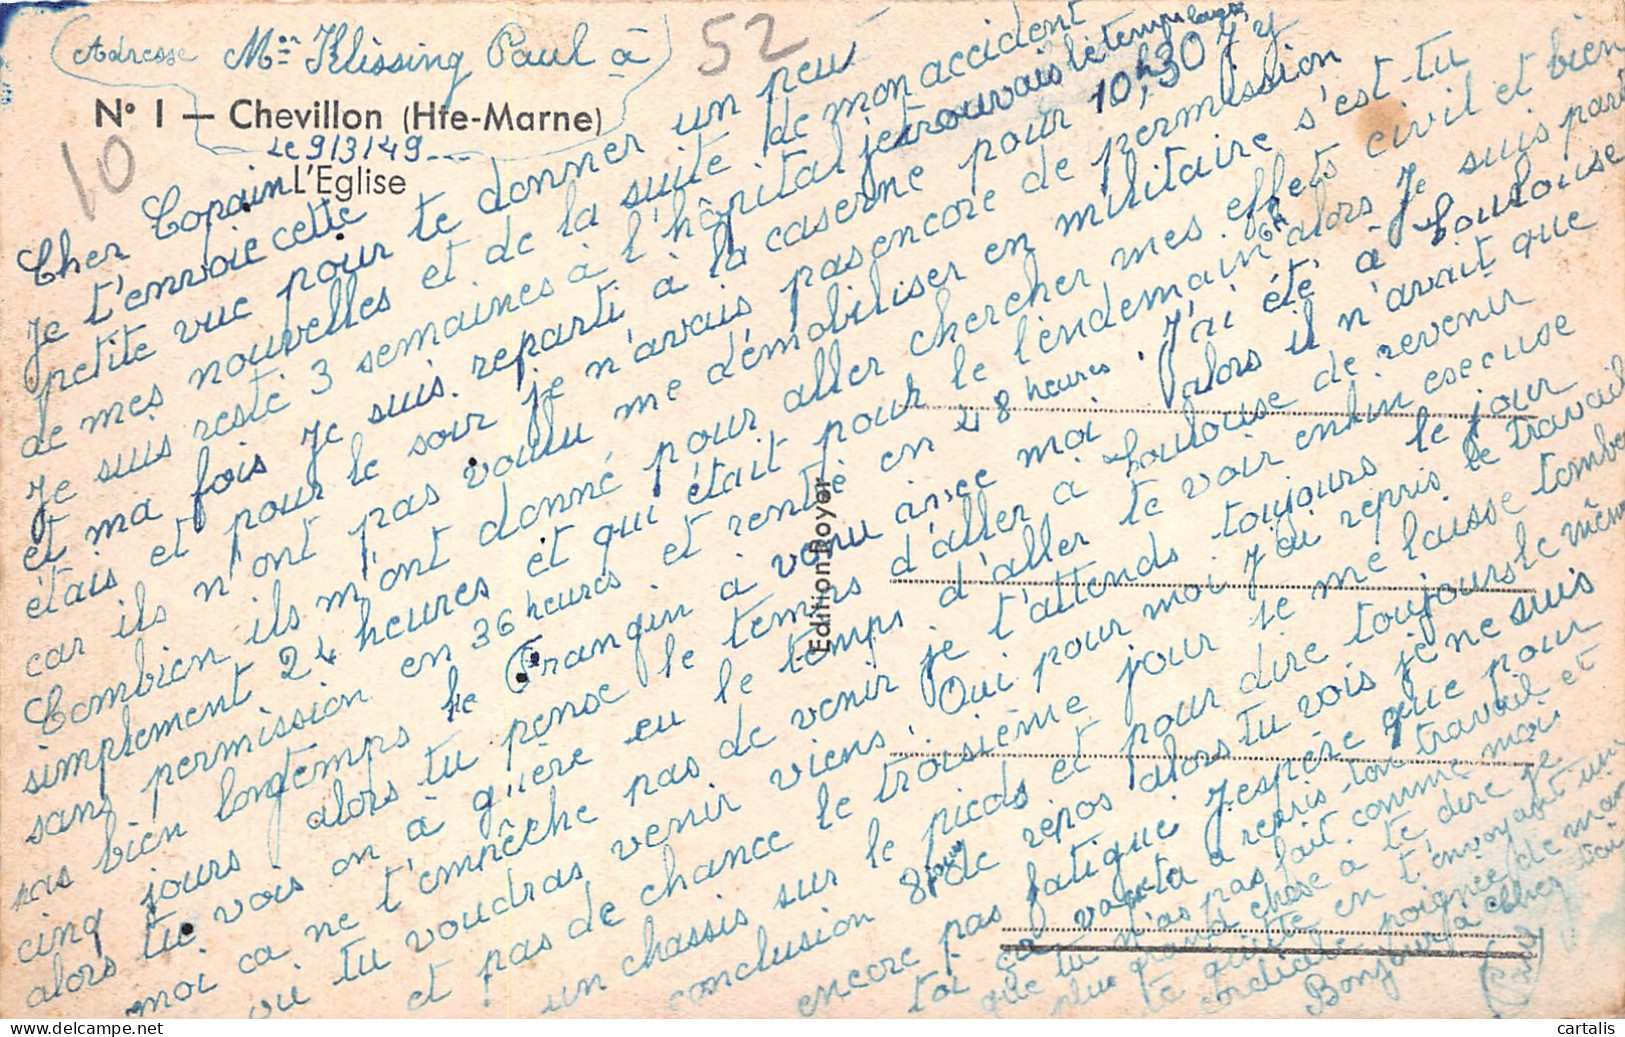 Adresse Mr Klissing Paul à
52
N° I — Chevillon (Hte-Marne)
Le 9/3/49
L'Eglise
10
Cher Copain
Je t'envoie cette
petite vue pour te donner un peu
de mes nouvelles et de la suite de mon accident
Je suis resté 3 semaines à l'hôpital je trouvais le temps long
et ma fois je suis reparti à la caserne pour 10h,30 J'y
étais et pour le soir je n'avais pas encore de permission
car ils n'ont pas voulu me démobiliser en militaire s'est-tu
Combien ils m'ont donné pour aller chercher mes effets civil et bien
simplement 24 heures et qui était pour le lendemain alors Je suis parti
sans permission en 36 heures et rentré en 48 heures. J'ai été à Toulouse
pas bien longtemps le Frangin a venu avec moi alors il n'avait que
cinq jours alors tu pense le temps d'aller à Toulouse de revenir
alors tu vois on a guère eu le temps d'aller te voir enfin escuse
moi ca ne t'empêche pas de venir je t'attends toujours le jour
où tu voudras venir viens. Oui pour moi J'ai repris le travail
et pas de chance le troisième jour je me laisse tomber
un chassis sur le pieds et pour dire toujours le même
conclusion 8 jour de repos alors tu vois je ne suis
encore pas fatigué J'espère que pour
toi ca va ta repris ton travail et
que tu n'as pas fait comme moi
plus grand chose a te dire Je
te quitte en t'envoyant une
cordiale poignée de main
Bonjour à cher toi
Paul
Edition Royer
cartalis